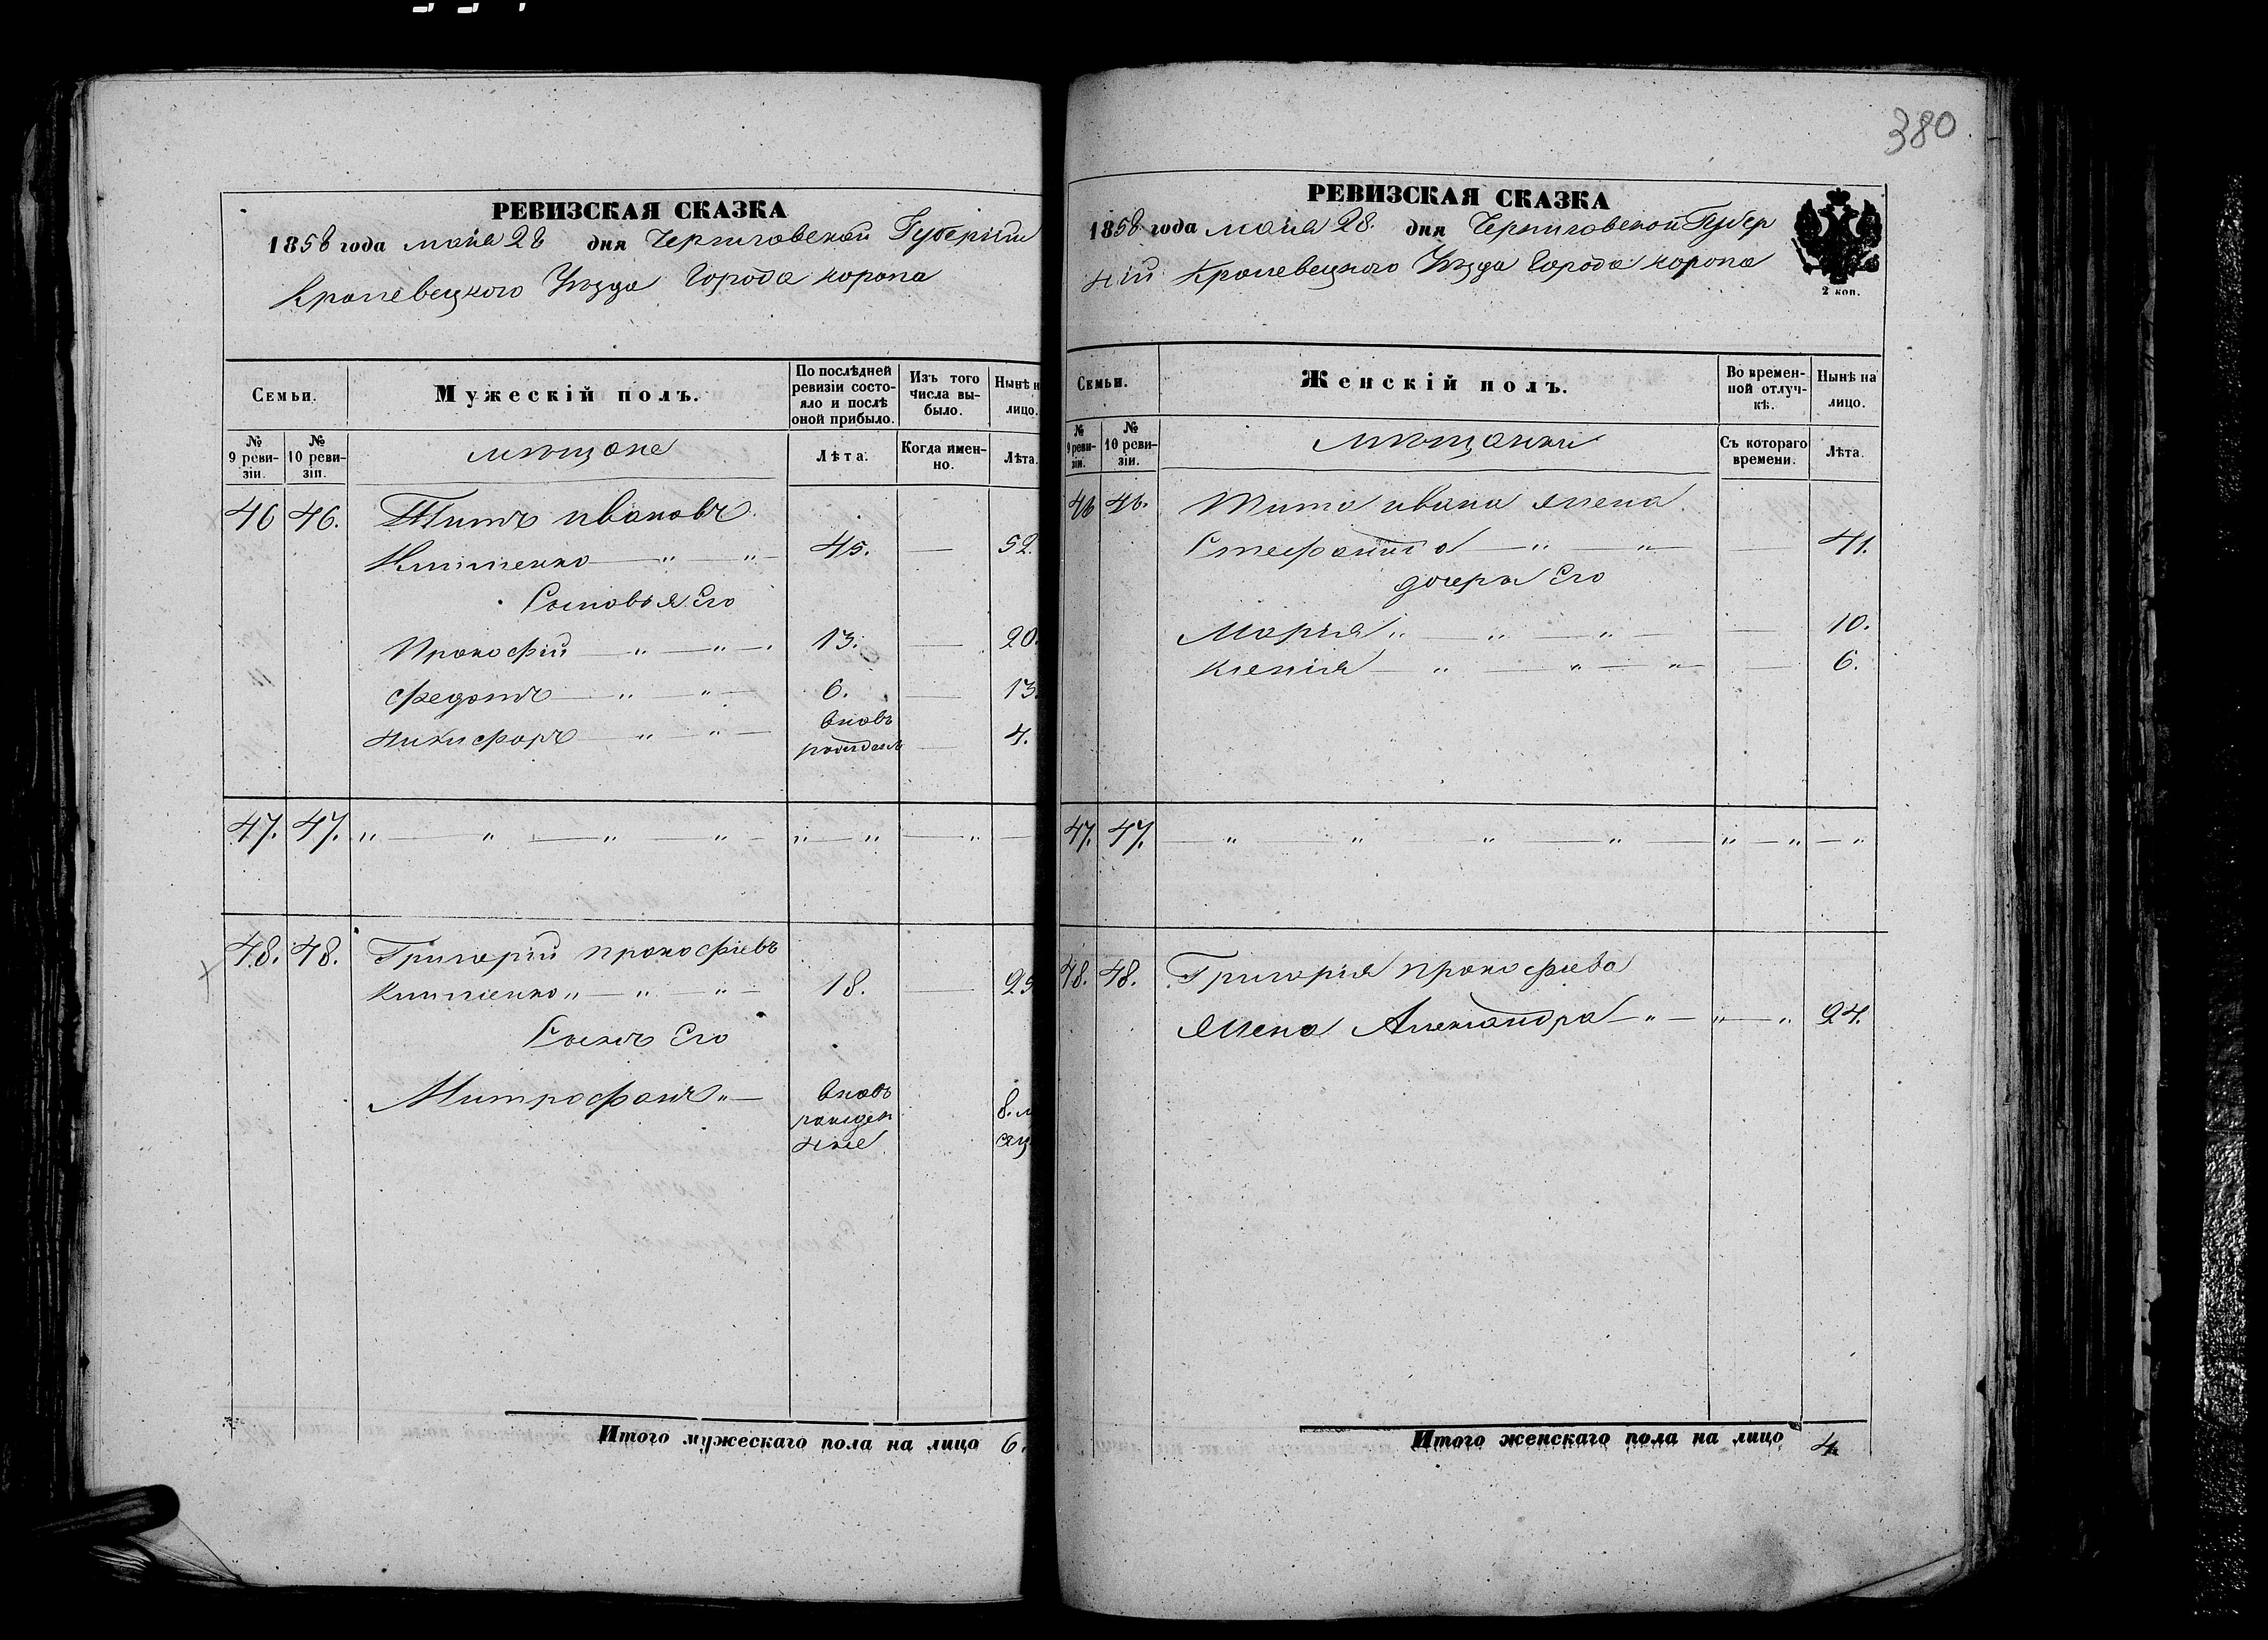 380
РЕВИЗСКАЯ СКАЗКА
1858 года мая 28 дня Черниговской Губерніи
Кролевецкого Уѣзда Города Коропа
Семьи.
Мужескій полъ.
По послѣдней ревизіи состояло и послѣ оной прибыло.
Изъ того числа выбыло.
Нынѣ н
лицо.
№ 9 ревизіи.
№ 10 ревизіи.
мѣщане
Лѣта.
Когда именно.
Лѣта.
46 46. Титъ Ивановъ
— " — " — 45. — 52.
Сыновья Его
Прокофій — " — " — 13. — 20.
Федотъ — " — " — 6. — 13.
Никифоръ — " — " — вновь рожденъ — 4.
47. 47. " — " — " — " — " — " — " —
48. 48. Григорій Прокофіевъ
" — " — " — 18. — 25
Сынъ Его
Митрофанъ " — вновь рожденные 8. м сяц
Итого мужескаго пола на лицо 6.
РЕВИЗСКАЯ СКАЗКА
1858 года мая 28. дня Черниговской Губер
ніи Кролевецкого Уѣзда Города Коропа
2 коп.
Семьи.
Женскій полъ.
Во временной отлучкѣ.
Нынѣ на лицо.
№ 9 ревизіи.
№ 10 ревизіи.
мѣщанки
Съ котораго времени.
Лѣта.
46 46. Тита Ивана жена
Стефанида — " — " — 41.
дочери Его
Марія " — " — " — 10.
Ксенія — " — " — " — 6.
47. 47. — " — " — " — " — " — " — "
48. 48. Григорія Прокофіева
жена Александра — " — " — " 24.
Итого женскаго пола на лицо 4